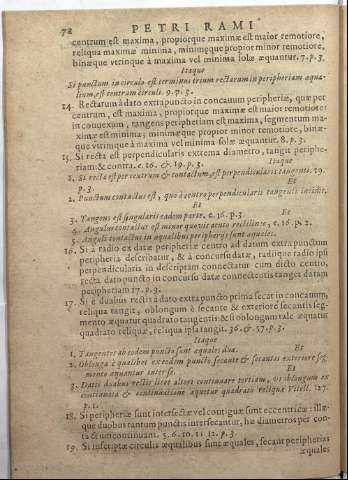 78 PETRI RAMI
centrum est maxima, propiorque maximæ est maior remotiore,
reliqua maximæ minima, minimæque propior minor remotiore,
binæque vtrinque à maxima vel minima solæ æquantur. 7. p. 3.
Itaque
Si punctum in circulo est terminus trium rectarum in peripheriam æqua-
lium, est centrum circuli. 9. p. 3.
24. Rectarum à dato extra puncto in concauum peripheriæ, quæ per
centrum, est maxima, propiorque maximæ est maior remotiore
in conuexam, tangens peripheriam est maxima, segmentum ma-
ximæ est minima; minimæque propior minor remotiore, binæ-
que vtrimque à maxima vel minima solæ æquantur. 8. p. 3.
15. Si recta est perpendicularis extrema diametro, tangit peripheri-
am: & contra. c. 16. & 19. p. 3. Itaque
1. Si recta est per centrum & contactum, est perpendicularis tangenti. 19.
p. 3. Et
2. Punctum contactus est, quò à centro perpendicularis tangenti incidit.
Et
3. Tangens est singularis eadem parte. c. 16. p. 3 Et
4. Angulus contactus est minor quouis acuto rectilineo, c. 16. p. 2.
5. Anguli contactus in æqualibus peripheriis sunt æquales.
16. Si à radio ex datæ peripheriæ centro ad datum extra punctum
peripheria describatur, & à concursu datæ, radiique radio ipsi
perpendicularis in descriptam connectatur cum dicto centro,
recta dato puncto in concursu datæ connectentis tanget datam
peripheriam 17. p. 3.
17. Si è duabus rectis à dato extra puncto prima secat in concauum,
reliqua tangit, oblongum è secante & exteriore secantis seg-
mento æquatur quadrato tangentis: & si oblongum tale æquatur
quadrato reliquæ, reliqua ipsa tangit. 36. & 37. p. 3.
Itaque
1. Tangentes ab eodem puncto sunt æquales duæ. Et
2. Oblonga è qualibet ex eodem puncto secante & secantis exteriore seg
mento æquantur inter se. Et
3. Datis duabus rectis licet altera continuare tertiam, vt oblongum ex
continuata & continuatione æquetur quadrato reliquæ Vitell. 127.
p. 1.
18. Si peripheriæ sunt intersectæ vel contiguæ sunt eccentricæ: illæ-
que duobus tantum punctis intersecantur, hæ diametros per con-
tactum continuant. 5. 6. 10. 11. 12. p. 3.
19. Si inscriptæ circulis æqualibus sunt æquales, secant peripherias
æquales